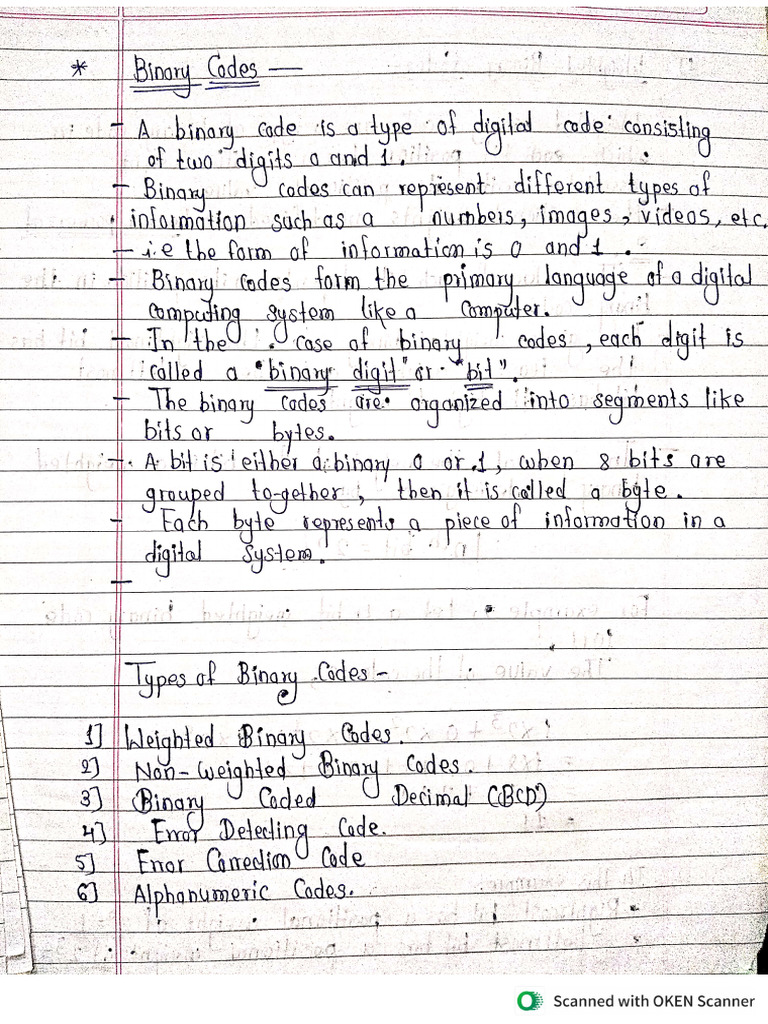 * Binary Codes —
- A binary code is a type of digital code consisting
of two digits 0 and 1.
- Binary codes can represent different types of
information such as a numbers, images, videos, etc.
- i.e the form of information is 0 and 1 .
- Binary codes form the primary language of a digital
computing system like a computer.
- In the case of binary codes, each digit is
called a "binary digit" or "bit".
- The binary codes are organized into segments like
bits or bytes.
- A bit is either a binary 0 or 1, when 8 bits are
grouped to-gether, then it is called a byte.
- Each byte represents a piece of information in a
digital System.
-
Types of Binary Codes-
1] Weighted Binary Codes.
2] Non-Weighted Binary Codes.
3] Binary Coded Decimal (BCD)
4] Error Detecting Code.
5] Error Correction Code
6] Alphanumeric Codes.
Scanned with OKEN Scanner